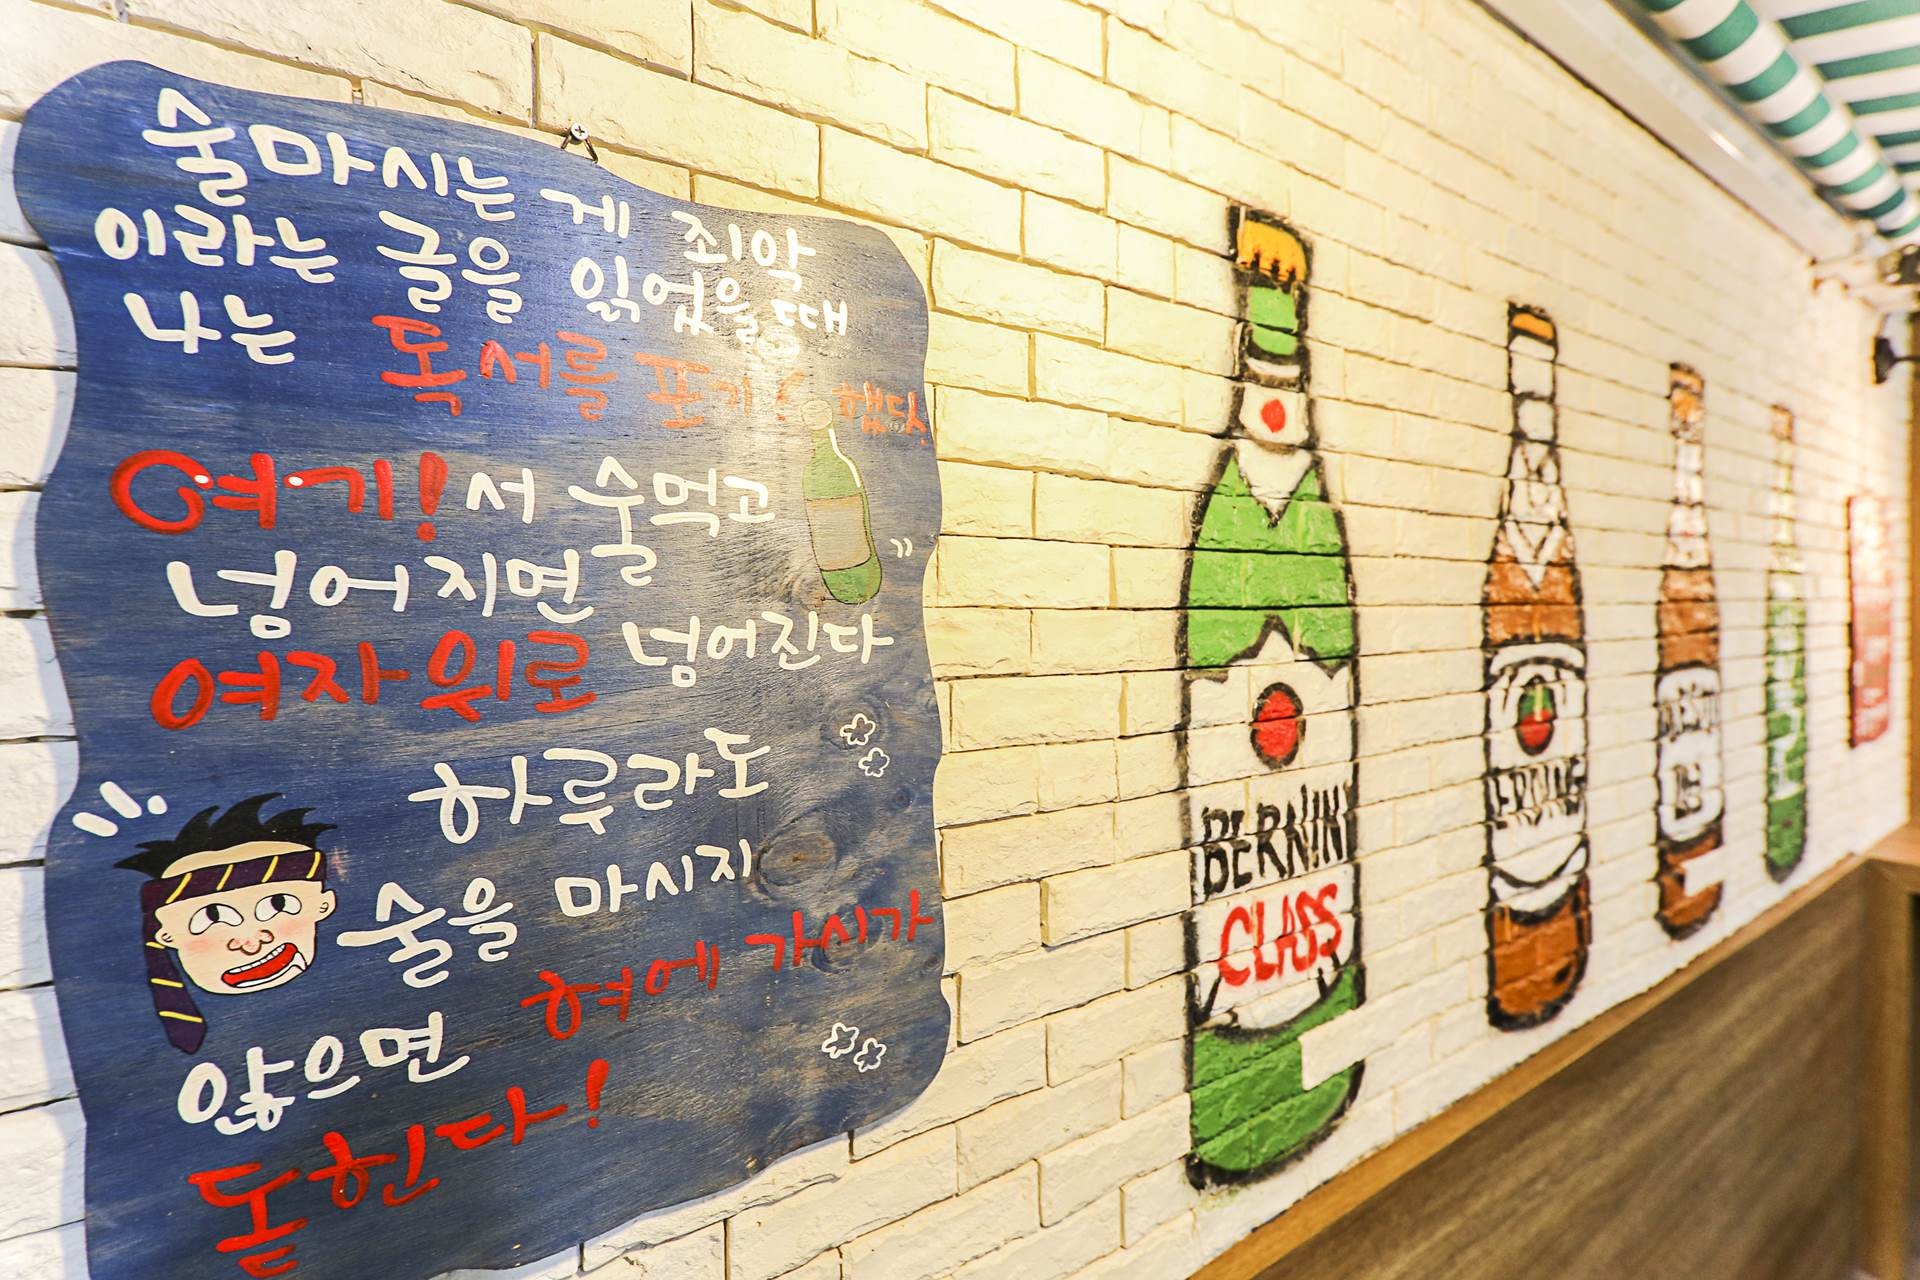 술마시는 게 죄악
이라는 글을 읽었을때
나는 독서를 포기 했다.
여기! 서 술먹고
넘어지면
여자위로 넘어진다
하루라도
술을 마시지
않으면 혀에 가시가
돋힌다!
BERNINI
CLASS
ERDING